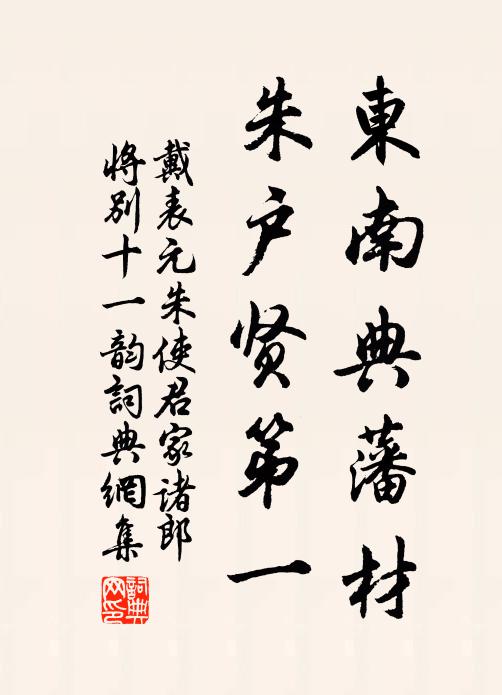 東南典藩材
朱户贤第一
戴表元朱使君家诸郎
将别十一韵詞典網集
詞典網印